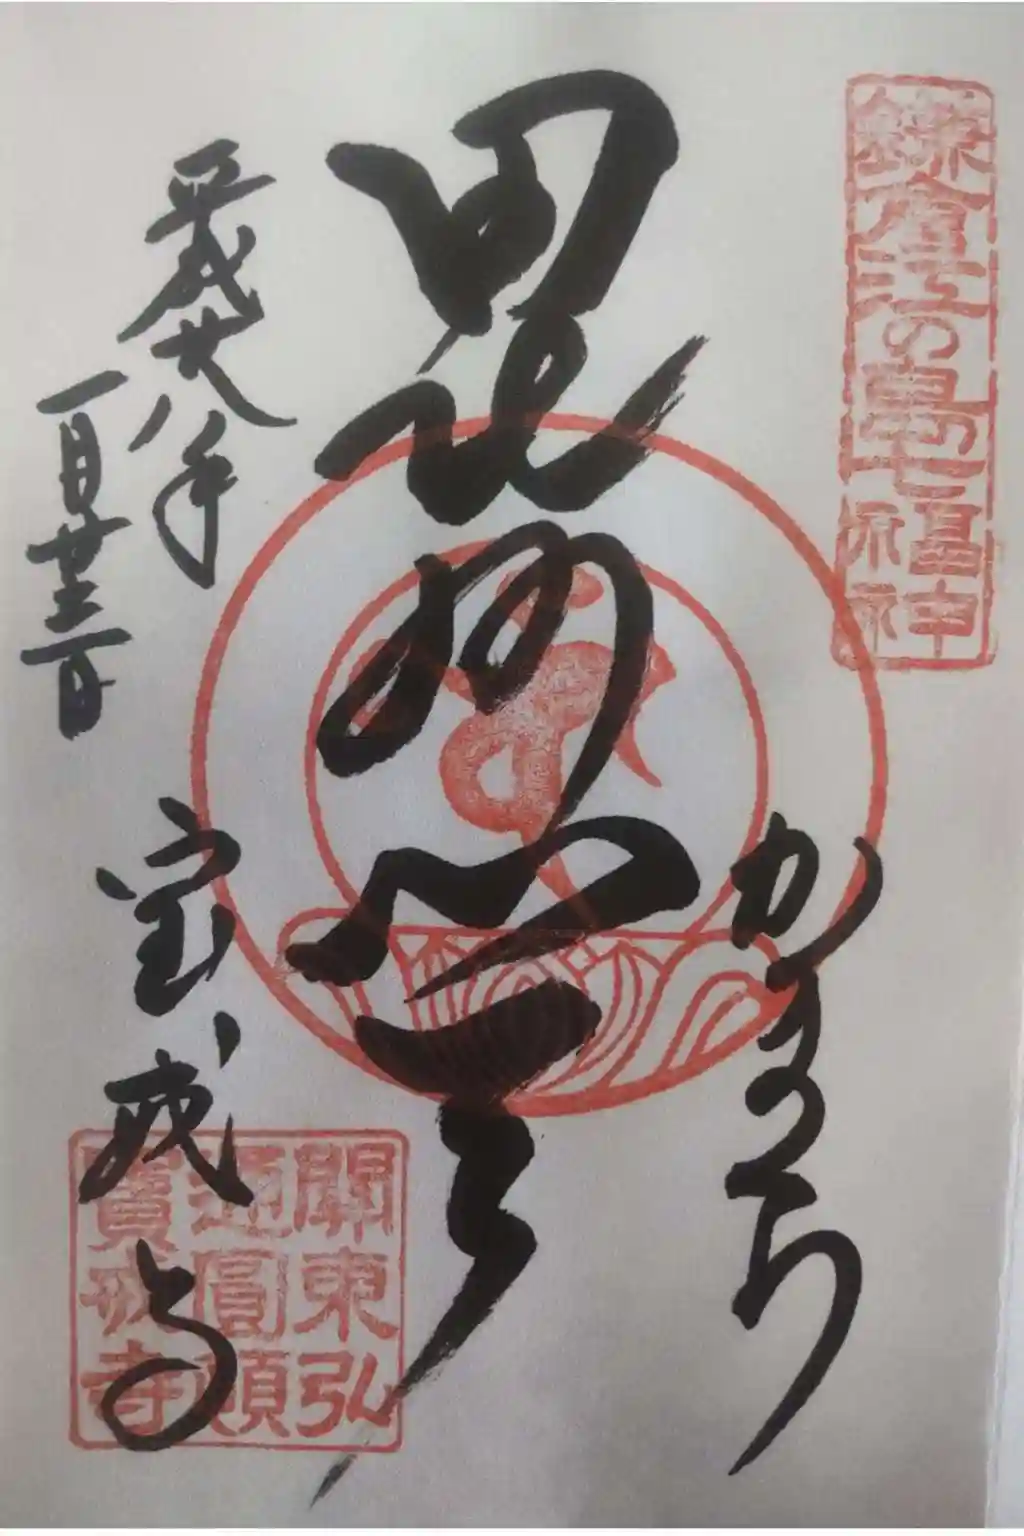 鎌倉江の島七福神
派示
かまくら
毘沙門天
平成廿八年
一月廿三日
宝戒寺
關東弘
通圓頓
寶戒寺